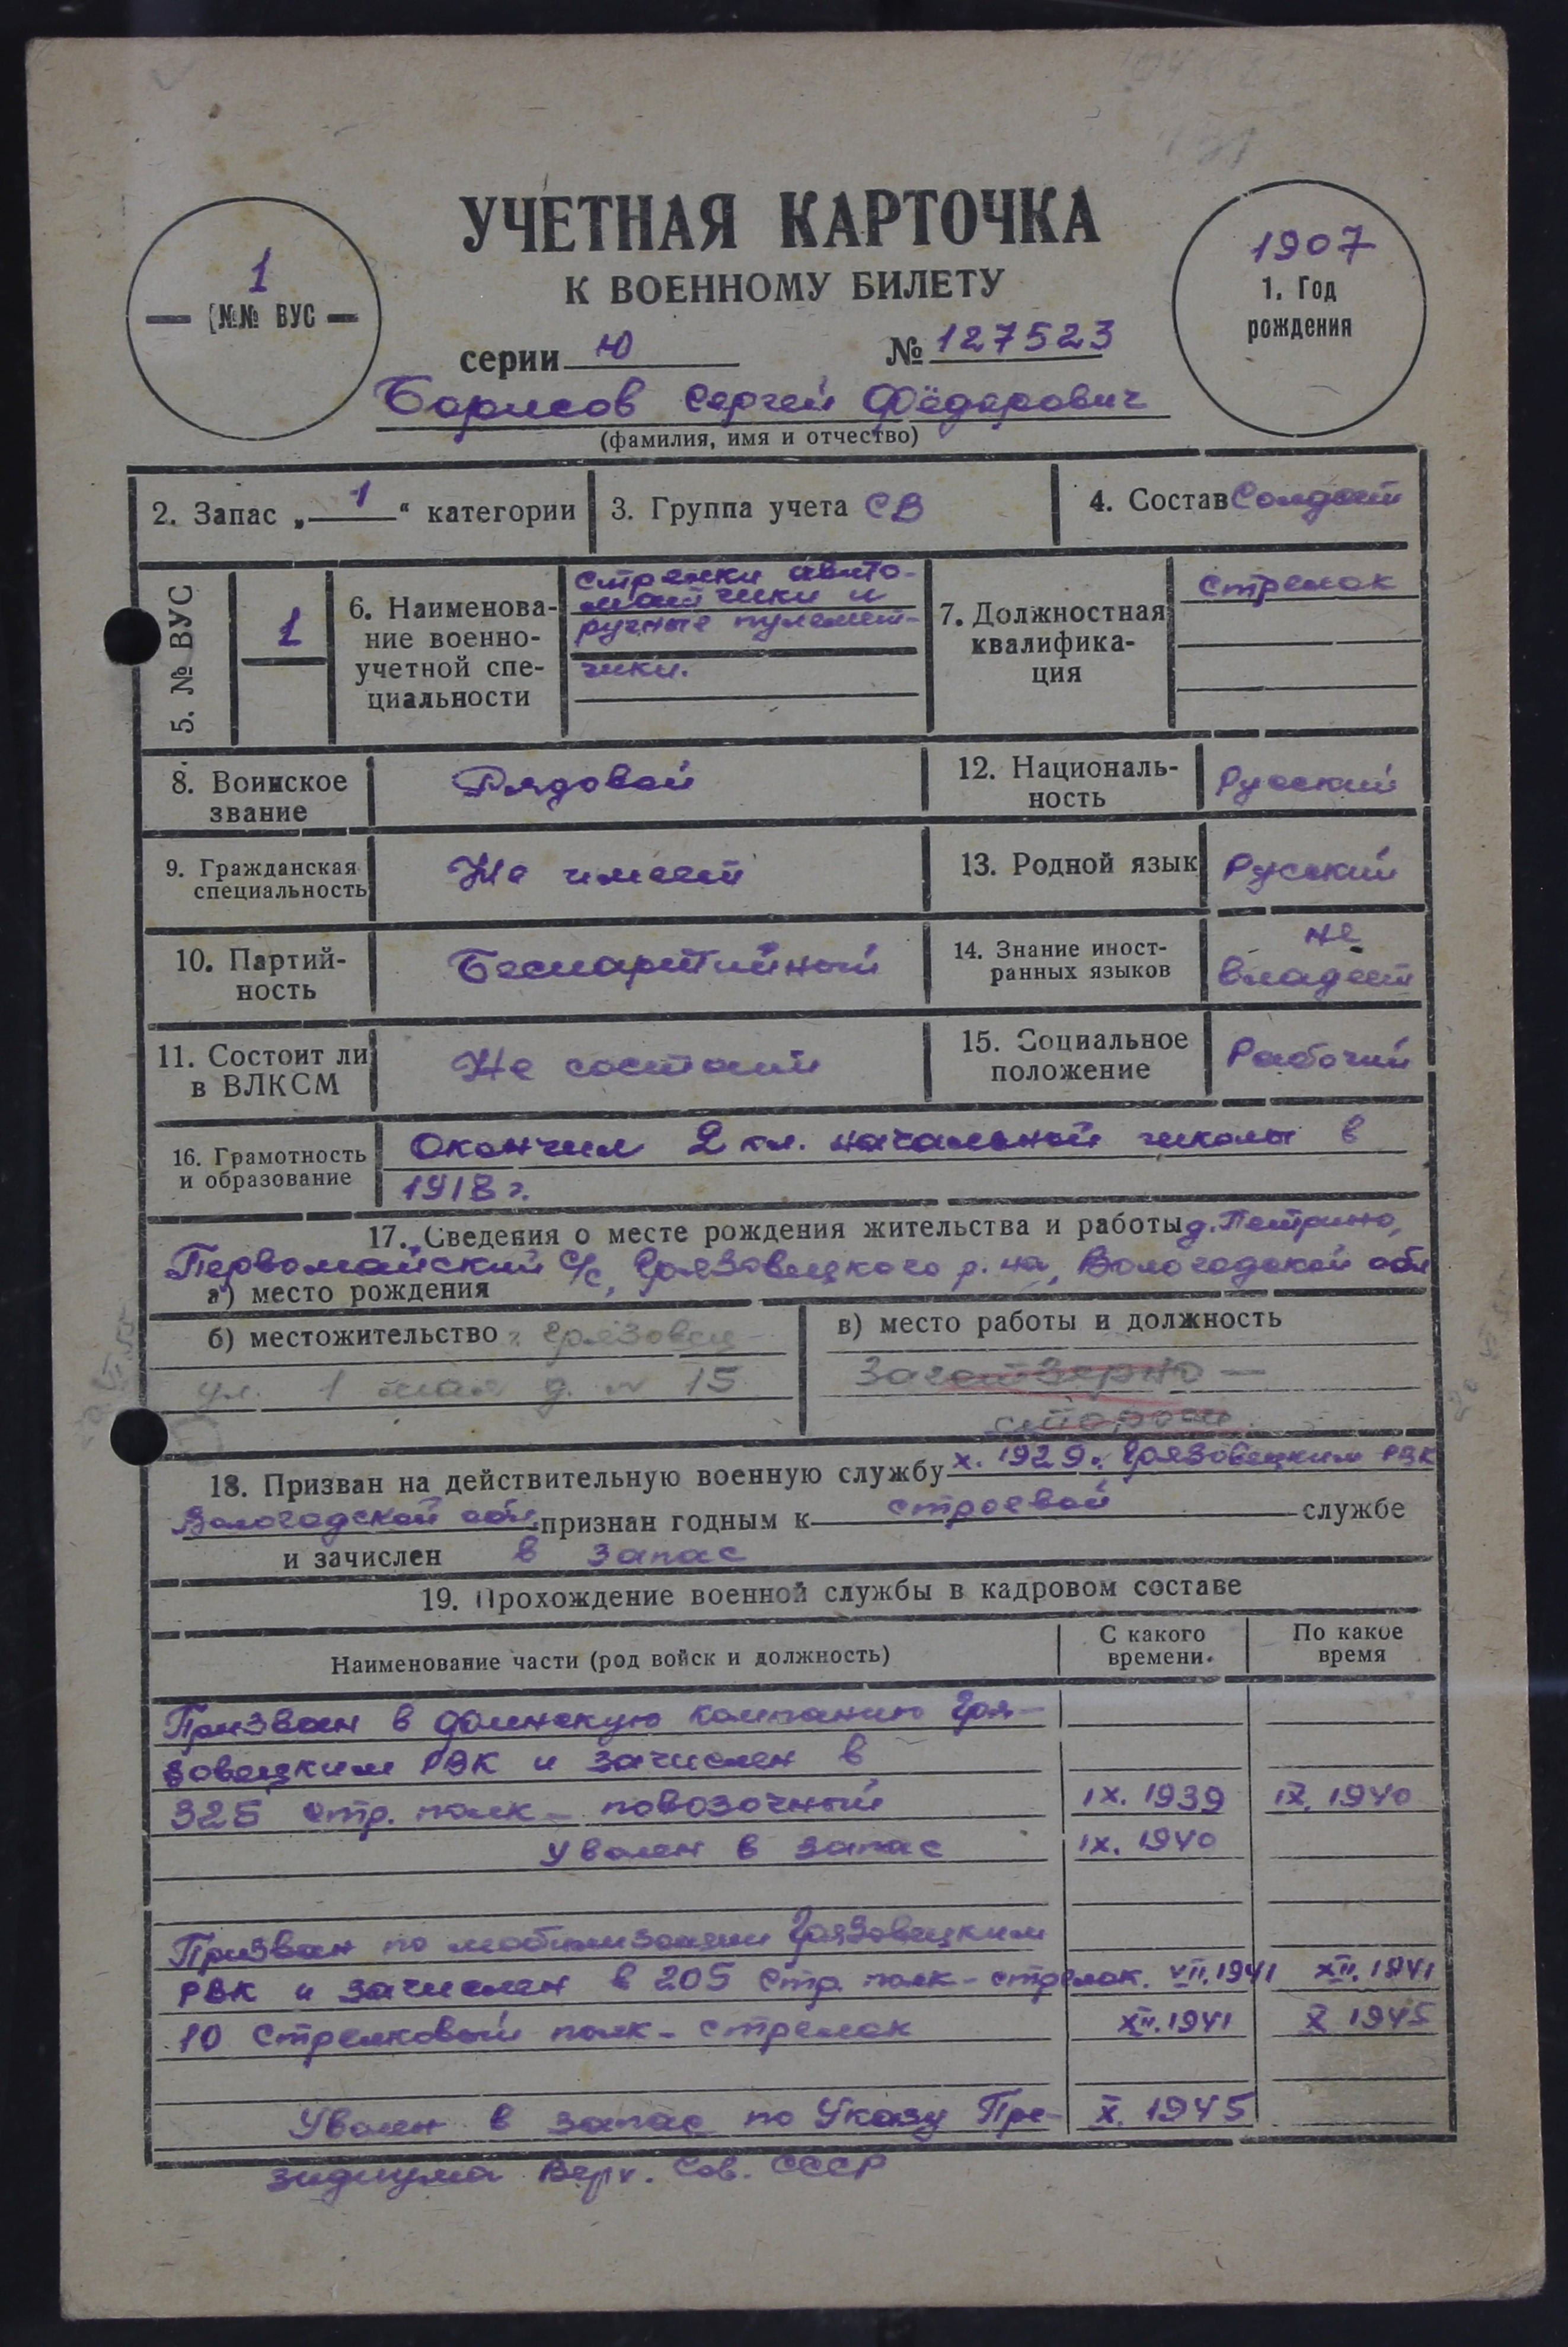 УЧЕТНАЯ КАРТОЧКА
К ВОЕННОМУ БИЛЕТУ
1
№№ ВУС
1907
1. Год
рождения
серии Ю № 127523
Борисов Сергей Фёдорович
(фамилия, имя и отчество)
2. Запас „1“ категории
3. Группа учета СВ
4. Состав Солдат
5. № ВУС
1
6. Наименова-
ние военно-
учетной спе-
циальности
стрелки авто-
матчики и
ручные пулемет-
чики.
7. Должностная
квалифика-
ция
стрелок
8. Воинское
звание
Рядовой
12. Националь-
ность
Русский
9. Гражданская
специальность
Не имеет
13. Родной язык
Русский
10. Партий-
ность
Беспартийный
14. Знание иност-
ранных языков
не
владеет
11. Состоит ли
в ВЛКСМ
Не состоит
15. Социальное
положение
Рабочий
16. Грамотность
и образование
Окончил 2 кл. начальной школы в
1918 г.
17. Сведения о месте рождения жительства и работы д. Петрино,
Первомайский с/с, Грязовецкого р-на, Вологодской обл
а) место рождения
б) местожительство г. Грязовец
ул. 1 мая д. № 15
в) место работы и должность
Заготзерно —
сторож.
18. Призван на действительную военную службу X. 1929г. Грязовецким РВК
Вологодской обл. признан годным к строевой службе
и зачислен в запас
19. Прохождение военной службы в кадровом составе
Наименование части (род войск и должность)
С какого
времени.
По какое
время
Призван в финскую компанию Гря-
зовецким РВК и зачислен в
325 стр. полк - повозочный IX. 1939 IX. 1940
Уволен в запас IX. 1940
Призван по мобилизации Грязовецким
РВК и зачислен в 205 стр. полк - стрелок. VII. 1941 XII. 1941
10 стрелковый полк - стрелок XII. 1941 X 1945
Уволен в запас по Указу Пре- X. 1945
зидиума Верх. Сов. СССР